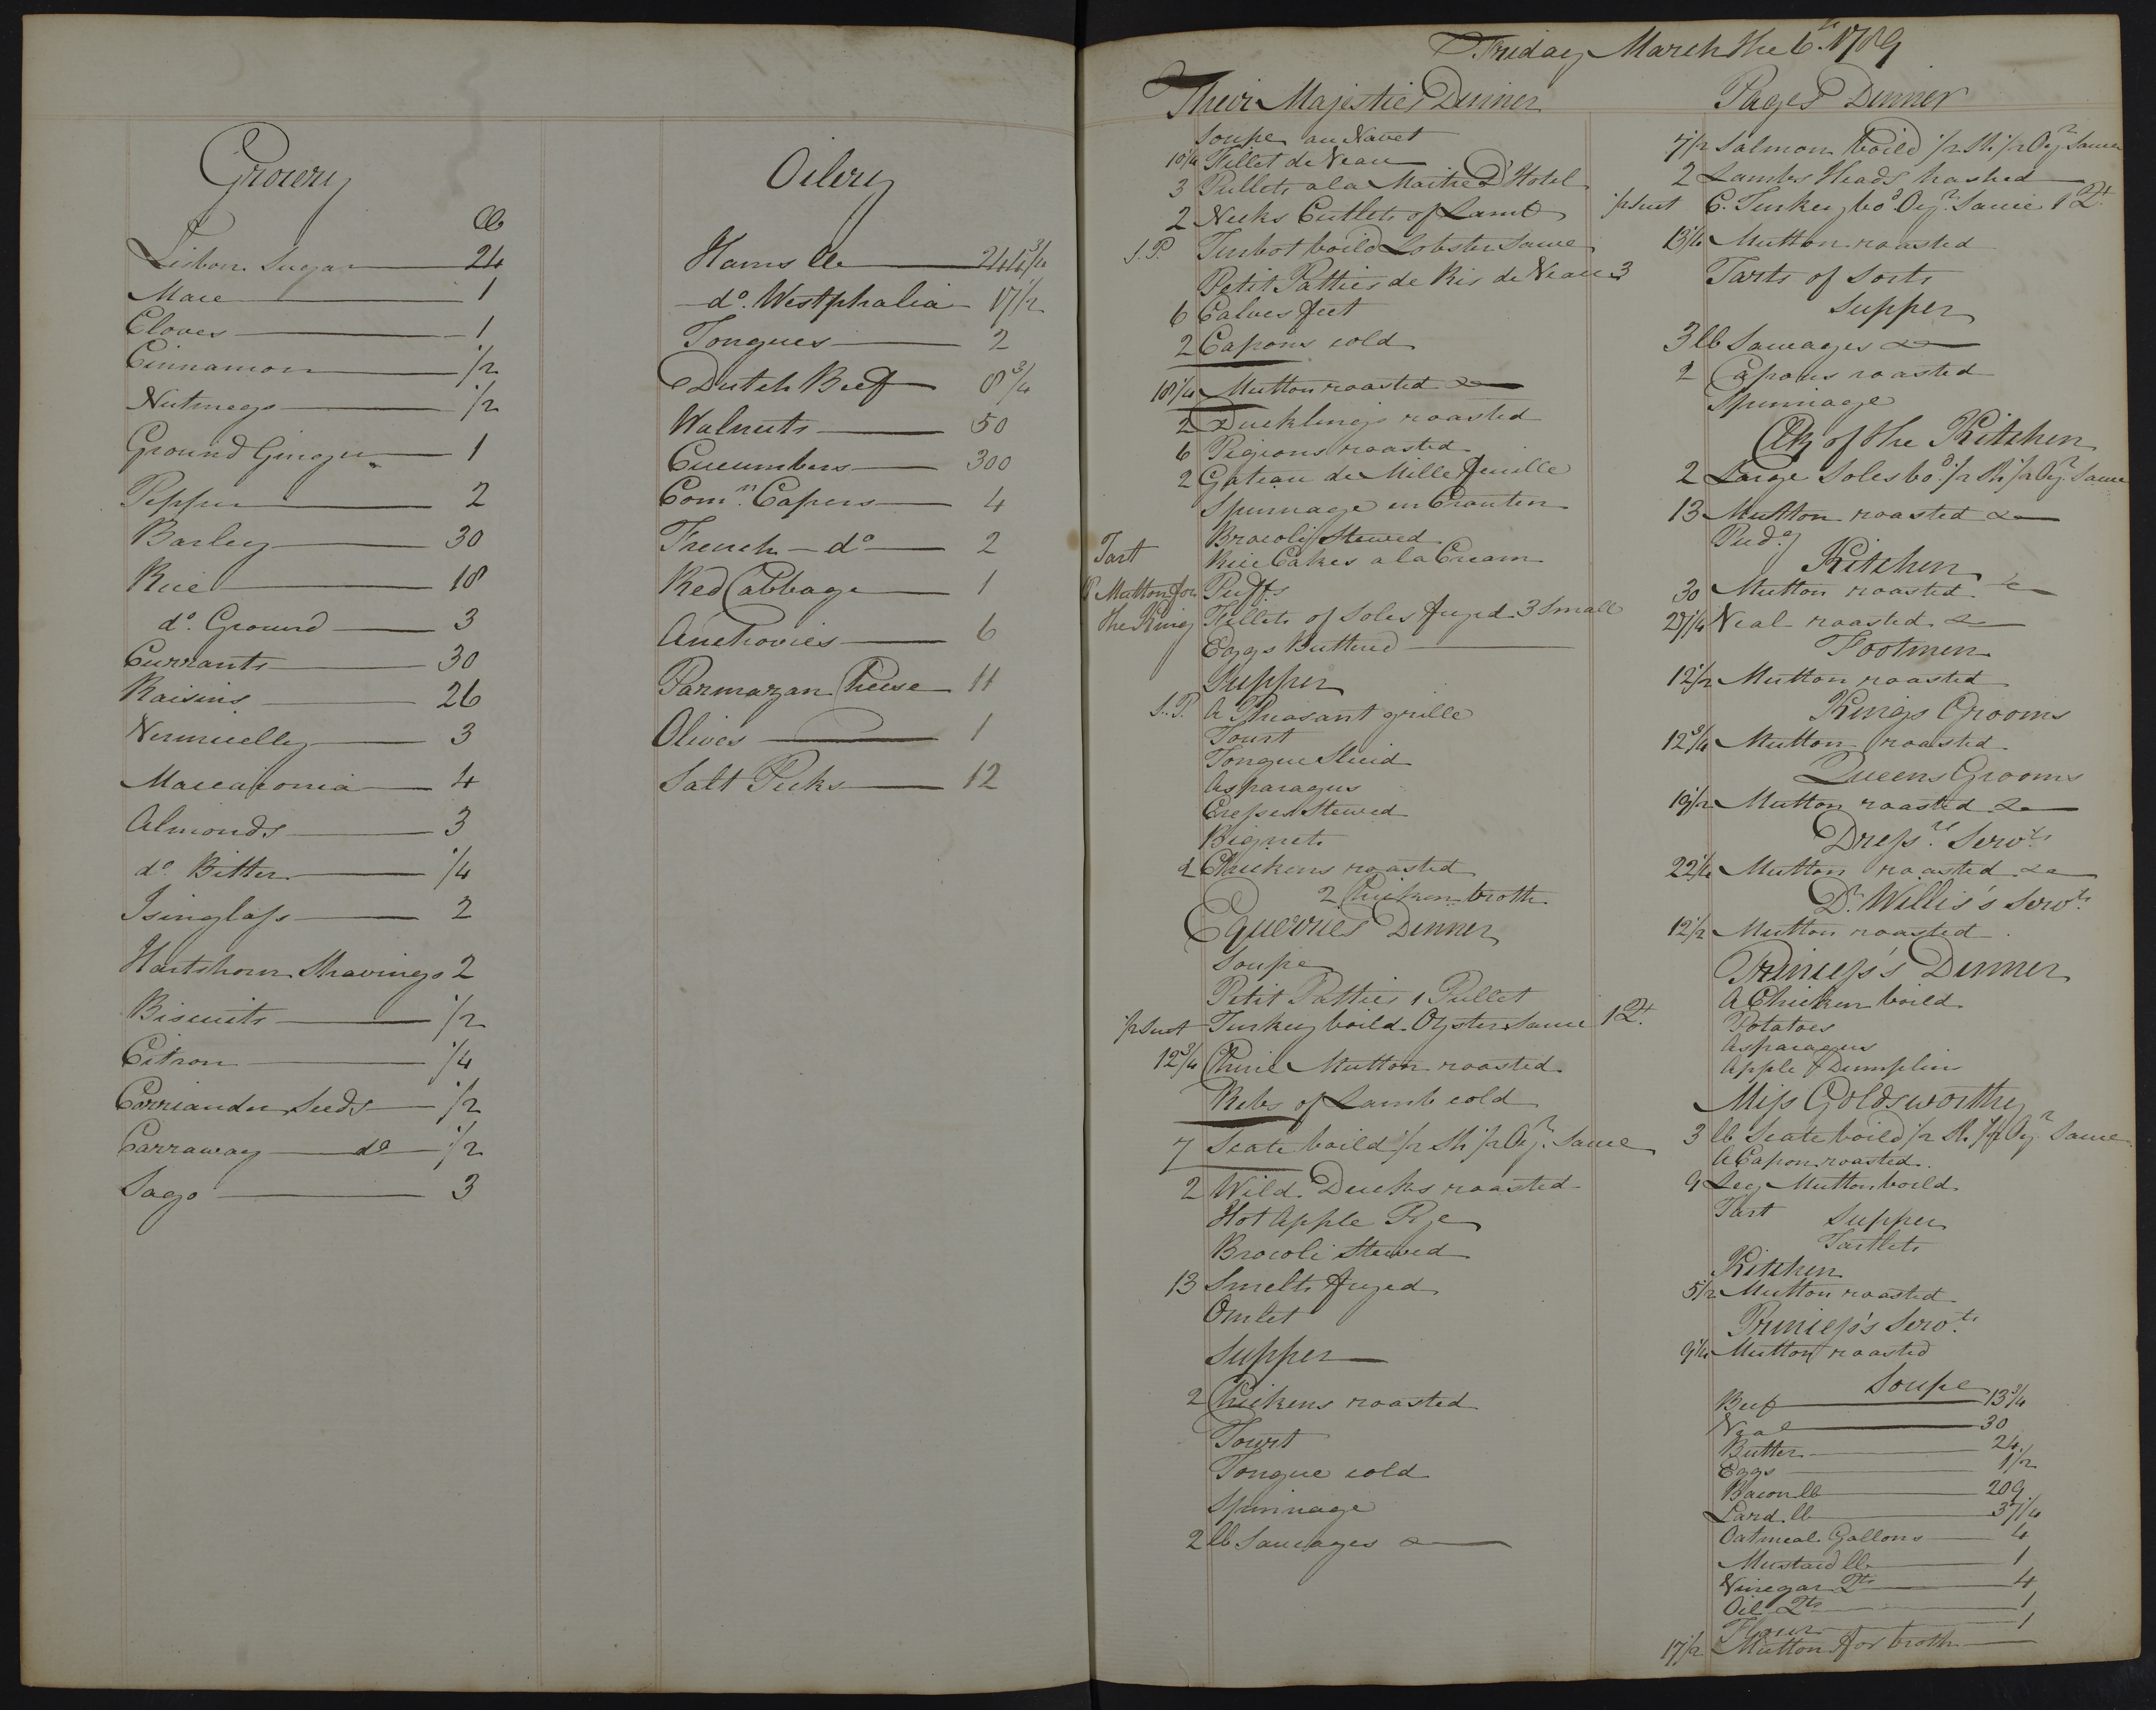 Grocery
lb
Lisbon Sugar 24
Mace 1
Cloves 1
Cinnamon 1/2
Nutmegs 1/2
Ground Ginger 1
Pepper 2
Barley 30
Rice 18
do. Ground 3
Currants 30
Raisins 26
Vermicelly 3
Maccaronia 4
Almonds 3
do Bitter 1/4
Isinglass 2
Hartshorn Shavings 2
Biscuits 1/2
Citron 1/4
Corriander Seeds 1/2
Carraway do 1/2
Sago 3
Oilery
Hams lb 244 3/4
do. Westphalia 17 1/2
Tongues 2
Dutch Beef 8 3/4
Walnuts 50
Cucumbers 300
Comn. Capers 4
French do 2
Red Cabbage 1
Anchovies 6
Parmazan Cheese 11
Olives 1
Salt Picks 12
Friday March the 6th. 1789
Their Majesties Dinner
Soupe au Navet
10 1/4 Fillet de Veau
3 Pullets a la Maitre D'Hotel
2 Necks Cutlets of Lamb
S.P. Turbot boild Lobster Sauce
Petit Patties de Ris de Veau 3
6 Calves feet
2 Capons cold
18 1/4 Mutton roasted
2 Ducklings roasted
6 Pigions roasted
2 Gateau de Mille feuille
Spinnage en Crouten
Brocoli Stewed
Tart Rice Cakes a la Cream
8 Mutton for Puffs
the King Fillets of Soles fryed 3 Small
Eggs Buttered
Supper
S.P. A Pheasant grille
Tourt
Tongue Sliced
Asparagus
Creps Stewed
Bignets
2 Chickens roasted
2 Chicken broth
Equerries Dinner
Soupe
Petit Patties 1 Pullet
1/2 Suet Turkey boild Oyster Sauce 1 Qt.
12 3/4 Chine Mutton roasted
Ribs of Lamb cold
7 Scate boild 1/2 Sh 1/2 Oyr. Sauce
2 Wild Ducks roasted
Hot Apple Pye
Brocoli Stewed
13 Smelts fryed
Omlet
Supper
2 Chickens roasted
Tourt
Tongue cold
Spinnage
2 lb Saucages
Pages Dinner
7 1/2 Salmon boild 1/2 Sh. 1/2 Oyr Sauce
2 Lambs Heads hashed
1/2 Suet C. Turkey bod Oyr. Sauce 1 Qt
13 1/4 Mutton roasted
Tarts of Sorts
Supper
3 lb Saucages
2 Capons roasted
Spinnage
Clk of the Kitchen
2 Large Soles bod. 1/2 Sh 1/2 Oyr. Sauce
13 Mutton roasted
Pudg
Kitchen
30 Mutton roasted
27 1/4 Veal roasted
Footmen
12 1/2 Mutton roasted
Kings Grooms
12 3/4 Mutton roasted
Queens Grooms
19 1/2 Mutton roasted
Dressrs. Servts
22 1/4 Mutton roasted
Dr. Willis's Servts.
12 1/2 Mutton roasted
Princess's Dinner
A Chicken boild
Potatoes
Asparagus
Apple Dumplin
Miss Goldsworthy
3 lb Scate boild 1/2 Sh. 1/2 Oyr Sauce
A Capon roasted
9 Leg Mutton boild
Tart
Supper
Tartlets
Kitchen
5 1/2 Mutton roasted
Princess's Servts.
9 1/4 Mutton roasted
Soupe
Beef 13 3/4
Veal 30
Butter 24
Eggs 1 1/2
Bacon lb 209
Lard lb 37 1/4
Oatmeal Gallons 4
Mustard lb 1
Vinegar Qts 4
Oil Qts 1
Flour 1
17 1/2 Mutton for broth